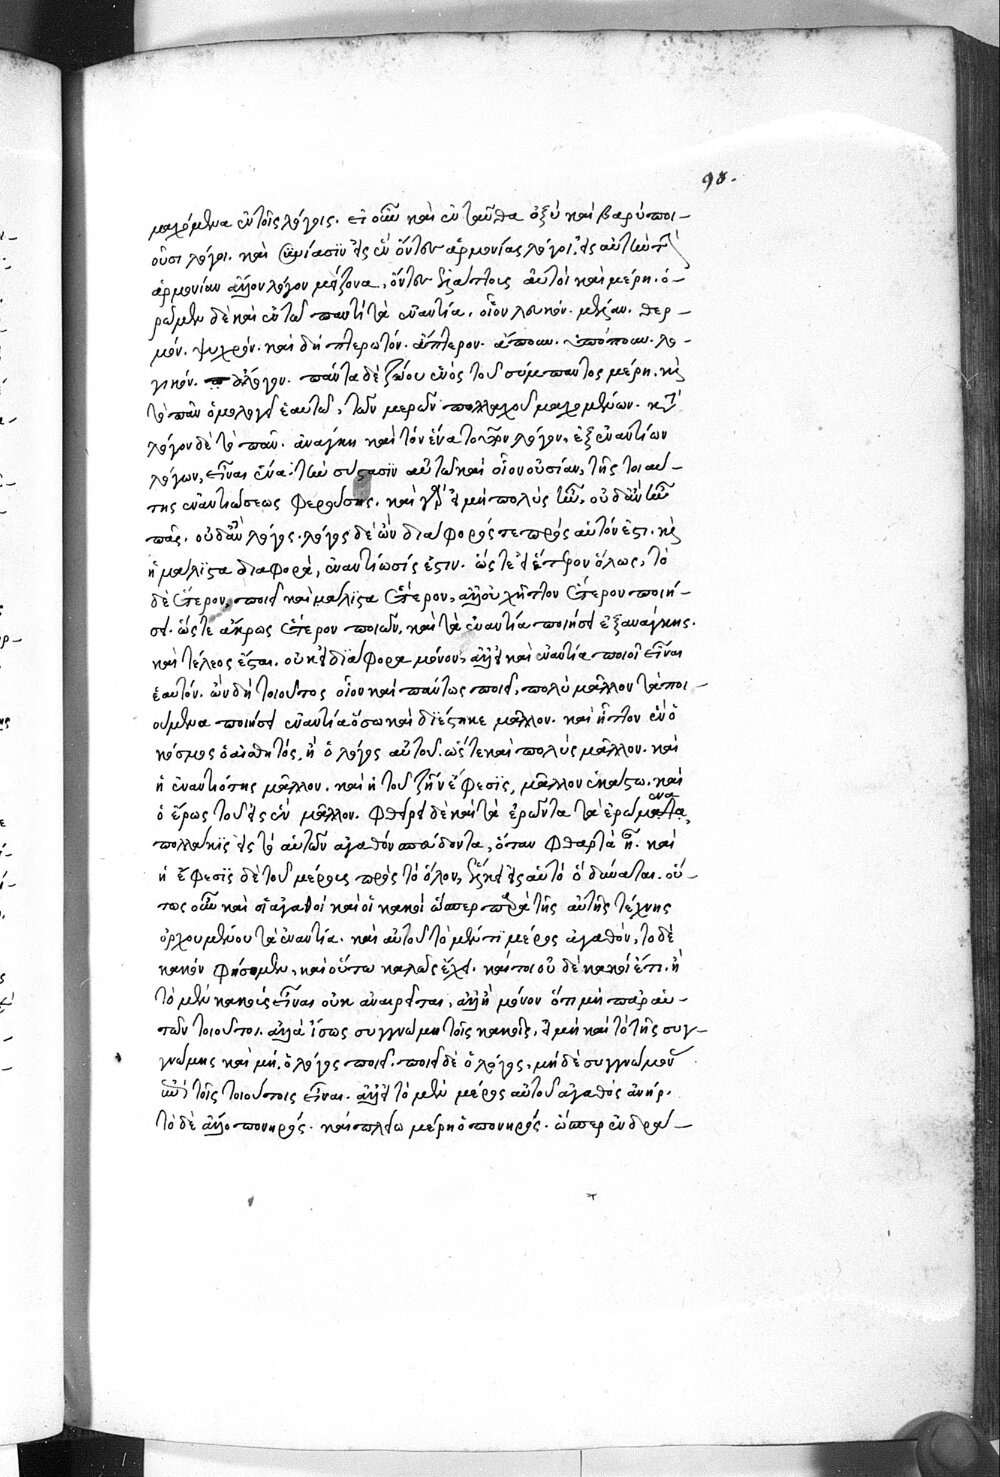 98.
μαχόμενα ἐν τοῖς λόγοις. εἰ οὖν καὶ ἐνταῦθα ὀξὺ καὶ βαρὺ ποι-
οῦσι λόγοι. καὶ συνίασιν εἰς ἓν ὄντες ἁρμονίας λόγοι, εἰς αὐτὴν τὴν
ἁρμονίαν ἄλλον λόγον μείζονα, ὄντες ἐλάττους αὐτοὶ καὶ μέρη. ὁ-
ρῶμεν δὲ καὶ ἐν τῷ παντὶ τὰ ἐναντία. οἷον λευκόν. μέλαν. θερ-
μόν. ψυχρόν. καὶ δὴ πτερωτόν. ἄπτερον. ἄπουν. ὑπόπουν. λο-
γικόν. ἄλογον. πάντα δὲ ζῴου ἑνὸς τοῦ σύμπαντος μέρη. καὶ
τὸ πᾶν ὁμολογεῖ ἑαυτῷ, τῶν μερῶν πολλαχοῦ μαχομένων. κατὰ
λόγον δὲ τὸ πᾶν. ἀνάγκη καὶ τὸν ἕνα τοῦτον λόγον, ἐξ ἐναντίων
λόγων, εἶναι ἕνα. τὴν σύστασιν αὐτῷ καὶ οἷον οὐσίαν, τῆς τοιαύ-
της ἐναντιώσεως φερούσης. καὶ γὰρ εἰ μὴ πολὺς ἦν, οὐδ' ἂν ἦν
πᾶς. οὐδ' ἂν λόγος. λόγος δὲ ὢν διάφορός τε πρὸς αὑτόν ἐστι. καὶ
ἡ μάλιστα διαφορά, ἐναντίωσίς ἐστιν. ὥστε εἰ ἕτερον ὅλως, τὸ
δὲ ἕτερον, ποιεῖ καὶ μάλιστα ἕτερον, ἀλλ' οὐχ ἧττον ἕτερον ποιή-
σει. ὥστε ἄκρως ἕτερον ποιῶν, καὶ τὰ ἐναντία ποιήσει ἐξ ἀνάγκης.
καὶ τέλεος ἔσται. οὐκ εἰ διάφορα μόνον, ἀλλ' εἰ καὶ ἐναντία ποιοῖ εἶναι
ἑαυτόν. ὢν δὴ τοιοῦτος οἷον καὶ πάντως ποιεῖ, πολὺ μᾶλλον τὰ ποι-
ούμενα ποιήσει ἐναντία ὅσῳ καὶ διέστηκε μᾶλλον. καὶ ἧττον ἓν ὁ
κόσμος ὁ αἰσθητός, ἢ ὁ λόγος αὐτοῦ. ὥστε καὶ πολὺς μᾶλλον. καὶ
ἡ ἐναντιότης μᾶλλον. καὶ ἡ τοῦ ζῆν ἔφεσις, μᾶλλον ἑκάστῳ. καὶ
ὁ ἔρως τοῦ εἰς ἓν μᾶλλον. φθείρει δὲ καὶ τὰ ἐρῶντα τὰ ἐρώμενα
πολλάκις εἰς τὸ αὑτῶν ἀγαθὸν σπεύδοντα, ὅταν φθαρτὰ ᾖ. καὶ
ἡ ἔφεσις δὲ τοῦ μέρους πρὸς τὸ ὅλον, ἕλκει εἰς αὑτὸ ὃ δύναται. οὕ-
τως οὖν καὶ οἱ ἀγαθοὶ καὶ οἱ κακοὶ ὥσπερ παρὰ τῆς αὐτῆς τέχνης
ὀρχουμένου τὰ ἐναντία. καὶ αὐτοῦ τὸ μέν τι μέρος ἀγαθόν, τὸ δὲ
κακὸν φήσομεν, καὶ οὕτω καλῶς ἔχει. καίτοι οὐδὲ κακοὶ ἔτι. ἢ
τὸ μὲν κακοὺς εἶναι οὐκ ἀναιρεῖται, ἀλλ' ἢ μόνον ὅτι μὴ παρ' αὑ-
τῶν τοιοῦτοι. ἀλλὰ ἴσως συγγνώμη τοῖς κακοῖς, εἰ μὴ καὶ τὸ τῆς συγ-
γνώμης καὶ μὴ, ὁ λόγος ποιεῖ. ποιεῖ δὲ ὁ λόγος, μὴ δὲ συγγνώμον
ἐπὶ τοῖς τοιούτοις εἶναι. ἀλλ' εἰ τὸ μὲν μέρος αὐτοῦ ἀγαθὸς ἀνήρ.
τὸ δὲ ἄλλο πονηρός. καὶ πλείω μέρη ὁ πονηρός. ὥσπερ ἐν δρά-